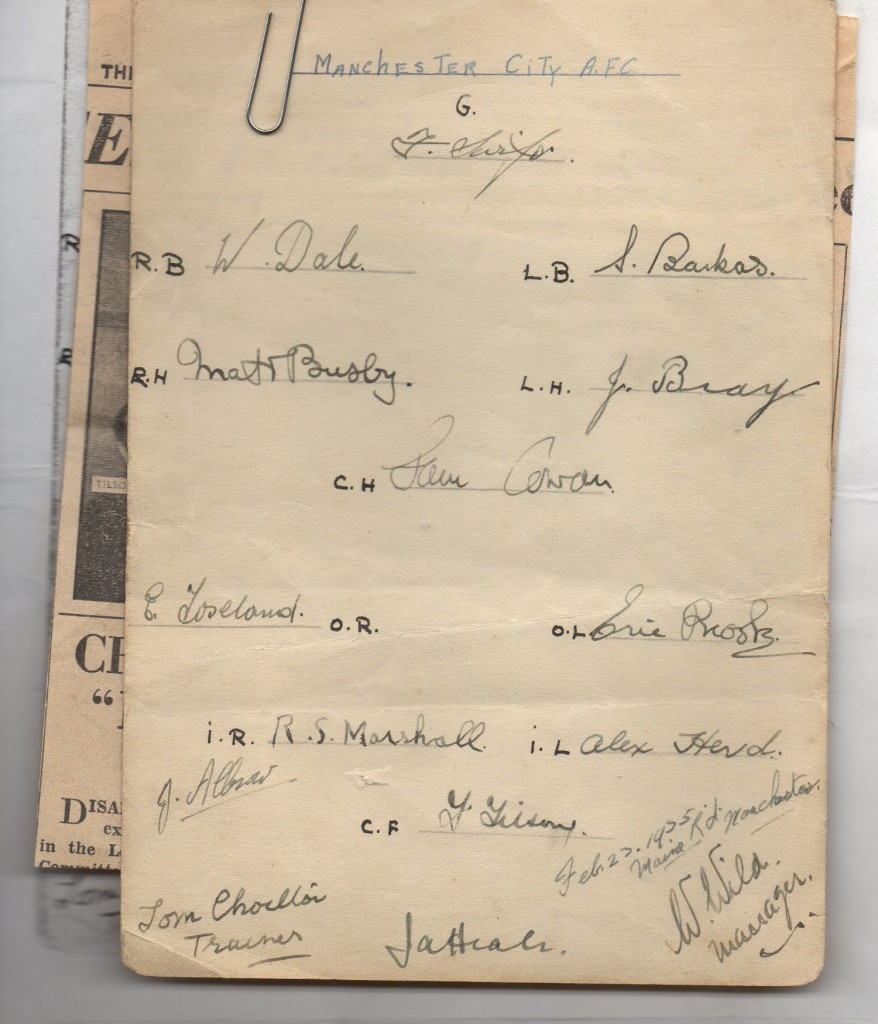 MANCHESTER CITY A.F.C.
G.
F. Swift.
R.B W. Dale. L.B. S. Barkas.
R.H Matt Busby. L.H. J. Bray
C.H Sam Cowan.
E. Toseland. O.R. O.L Eric Brook.
i.R. R.S. Marshall. i.L Alex Herd.
J. Allman
C.F F. Tilson.
Feb. 23. 1935
Maine Rd. Manchester.
W. Wild.
Manager.
Tom Chorlton
Trainer
TH
E
TILSO
CH
“
DISA
ex
in the L
Committ